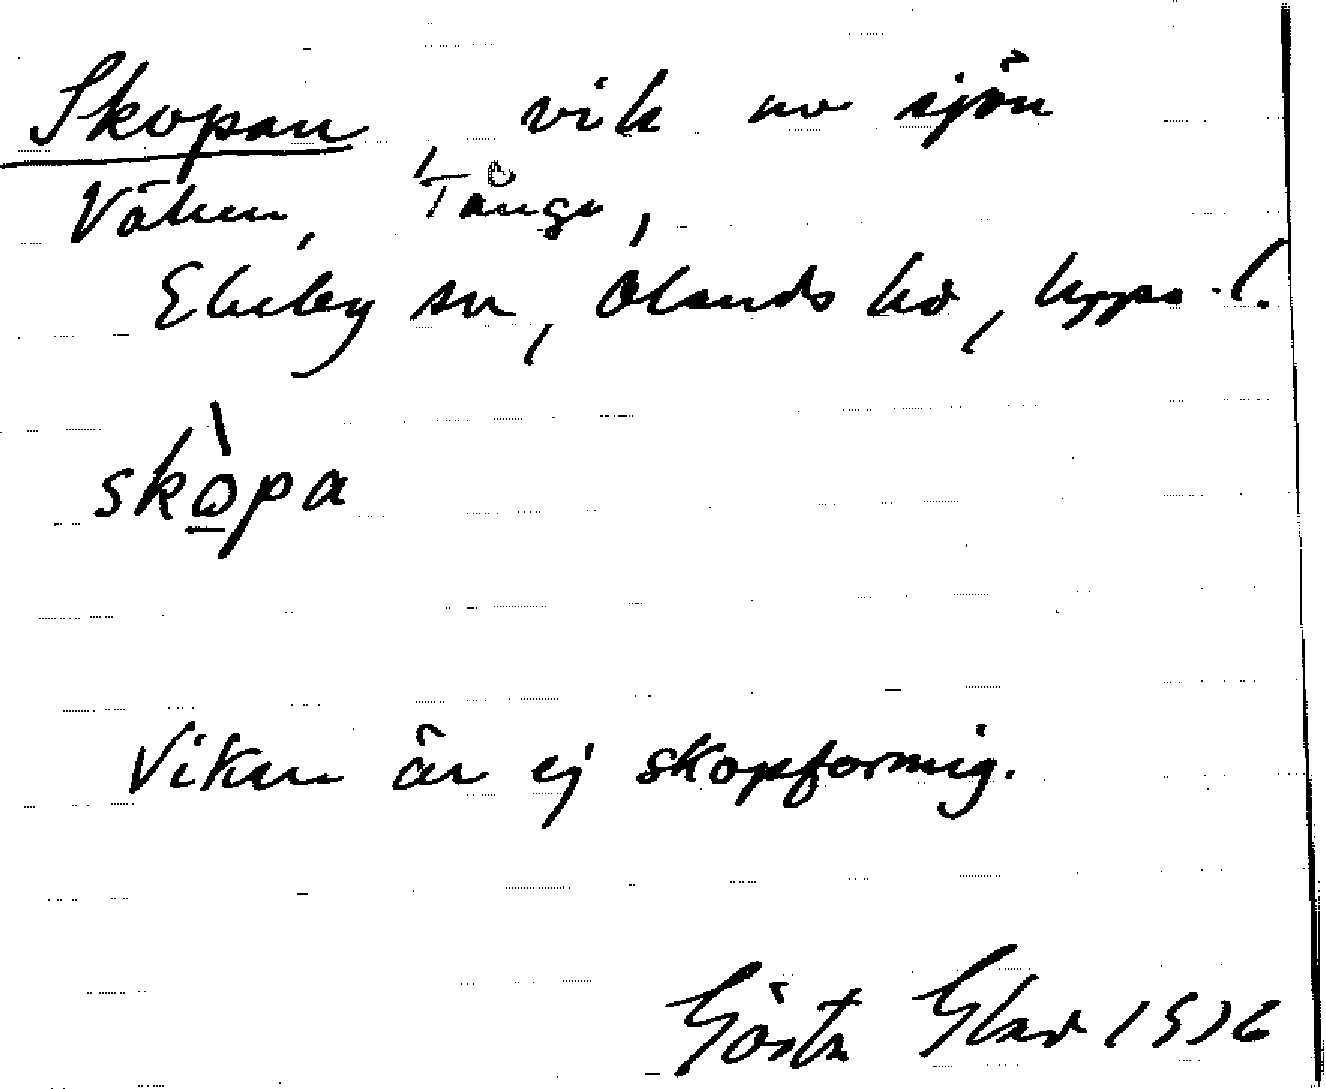 Skopan vik av sjön
Vällen, Tånga,
Ekeby sn, Olands hd, Upps. l.
skòpa
Viken är ej skopformig.
Gösta Glad 1936